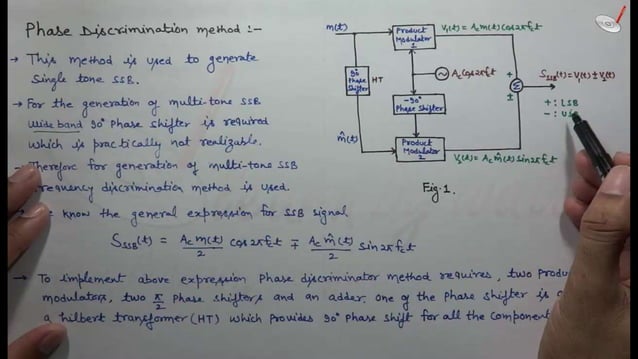 Phase Discrimination method :-
→ This method is used to generate
single tone SSB.
→ For the generation of multi-tone SSB
wide band 90° Phase shifter is required
which is practically not realizable.
→ Therefore for generation of multi-tone SSB
frequency discrimination method is used.
know the general expression for SSB signal
S_SSB(t) = A_c m(t)/2 cos 2πf_ct ∓ A_c m̂(t)/2 sin 2πf_ct
→ To implement above expression Phase discriminator method requires, two
modulators, two π/2 Phase shifters and an adder. One of the Phase shifter is
a hilbert transformer (HT) which Provides 90° Phase shift for all the component
m(t)
Product
Modulator
1
V₁(t) = A_c m(t) cos 2πf_ct
90°
Phase
Shifter
HT
A_c cos 2πf_ct
-90°
Phase Shifter
m̂(t)
Product
Modulator
2
V₂(t) = A_c m̂(t) sin 2πf_ct
+
Σ
±
S_SSB(t) = V₁(t) ± V₂(t)
+ : LSB
- :
Fig. 1.